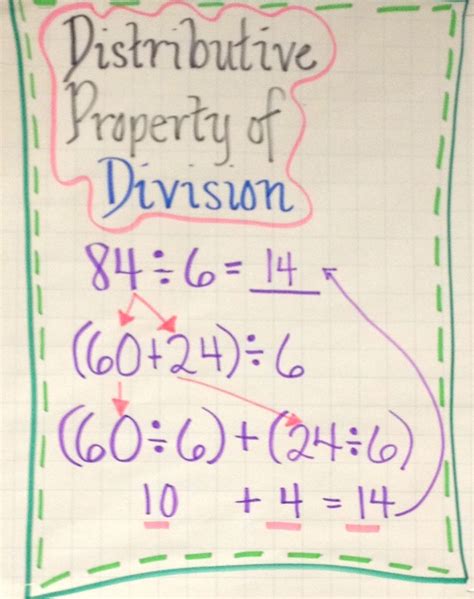 Distributive
Property of
Division
84÷6=14
(60+24)÷6
(60÷6)+(24÷6)
10 + 4 = 14